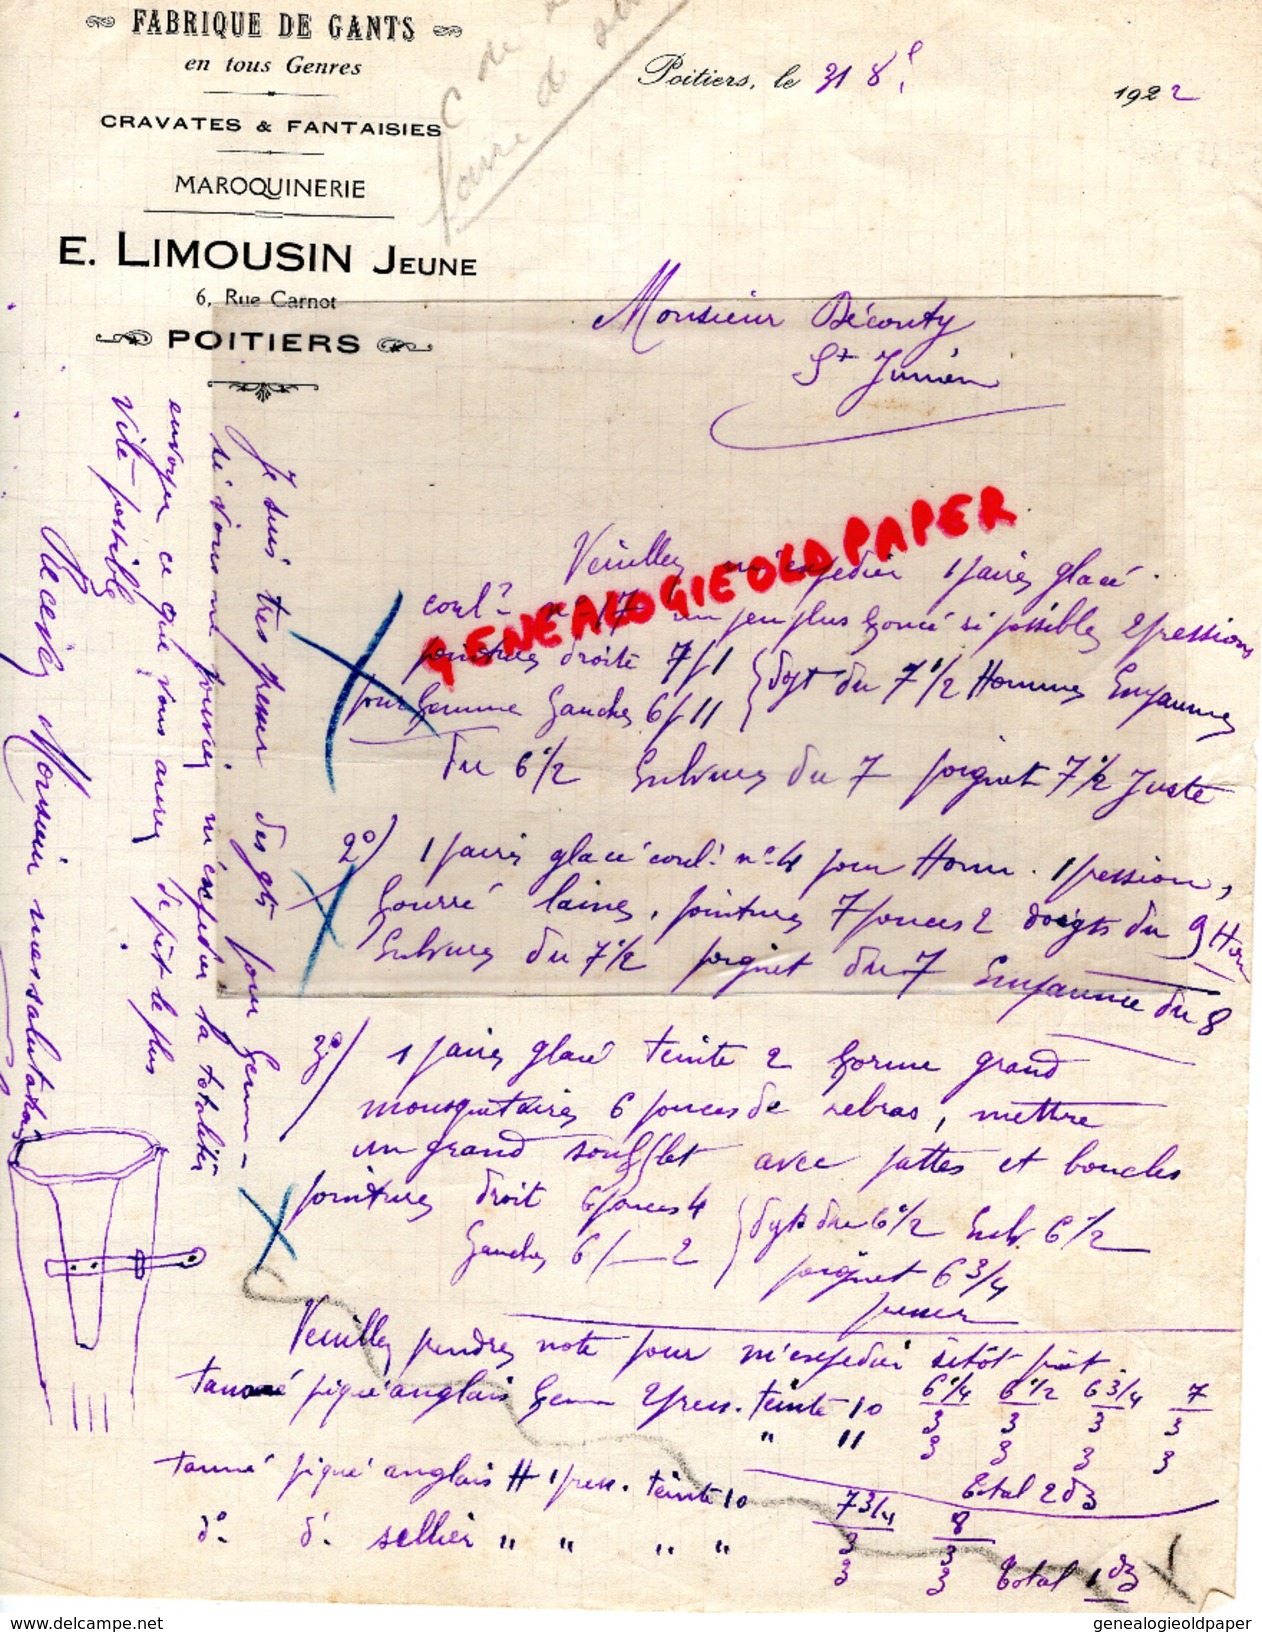 FABRIQUE DE GANTS
en tous Genres
CRAVATES & FANTAISIES
MAROQUINERIE
E. LIMOUSIN JEUNE
6, Rue Carnot
POITIERS
Poitiers, le 31 8 1922
Monsieur Découty
St Junien
GENEALOGIEOLDPAPER
Veuillez m'expedier 1 paires glacé
coul? n° 17 un peu plus foncé si possibles 2 pressions
pointures droite 7 p 1
pour femme Gauches 6 p 11 } dgt du 7 1/2 Hommes Empaumes
du 6 1/2 Entrures du 7 poignet 7 1/2 Juste
2°) 1 paires glacé coul. n° 4 pour Hom. 1 pression,
fourré laines, pointures 7 pouces 2 doigts du 9 Hom
Entrures du 7 1/2 poignet du 7 Empaume du 8
3°) 1 paires glacé teinte 2 forme grand
mousquetaires 6 pouces de rebras, mettre
un grand soufflet avec pattes et boucles
pointures droit 6 pouces 4
Gauches 6 / — 2 } dgts du 6 1/2 Entr 6 1/2
poignet 6 3/4
Veuillez prendres note pour m'expedier sitôt prêt
tanné piqué anglais fem 2 press. teinte 10 6 1/4 6 1/2 6 3/4 7
3 3 3 3
" 11 3 3 3 3
Total 2 dz
tanné piqué anglais H 1 press. teinte 10 7 3/4 8
3 3
d° d° sellier " " " " 3 3 Total 1 dz
Je suis tres presser des gts pour fem-
si vous ne pouvez m'expedier la totalités
envoyer ce que vous aurez de prêt le plus
vite possible
Recevez Monsieur mes salutations
genealogieoldpaper.delcampe.net
genealogieoldpaper